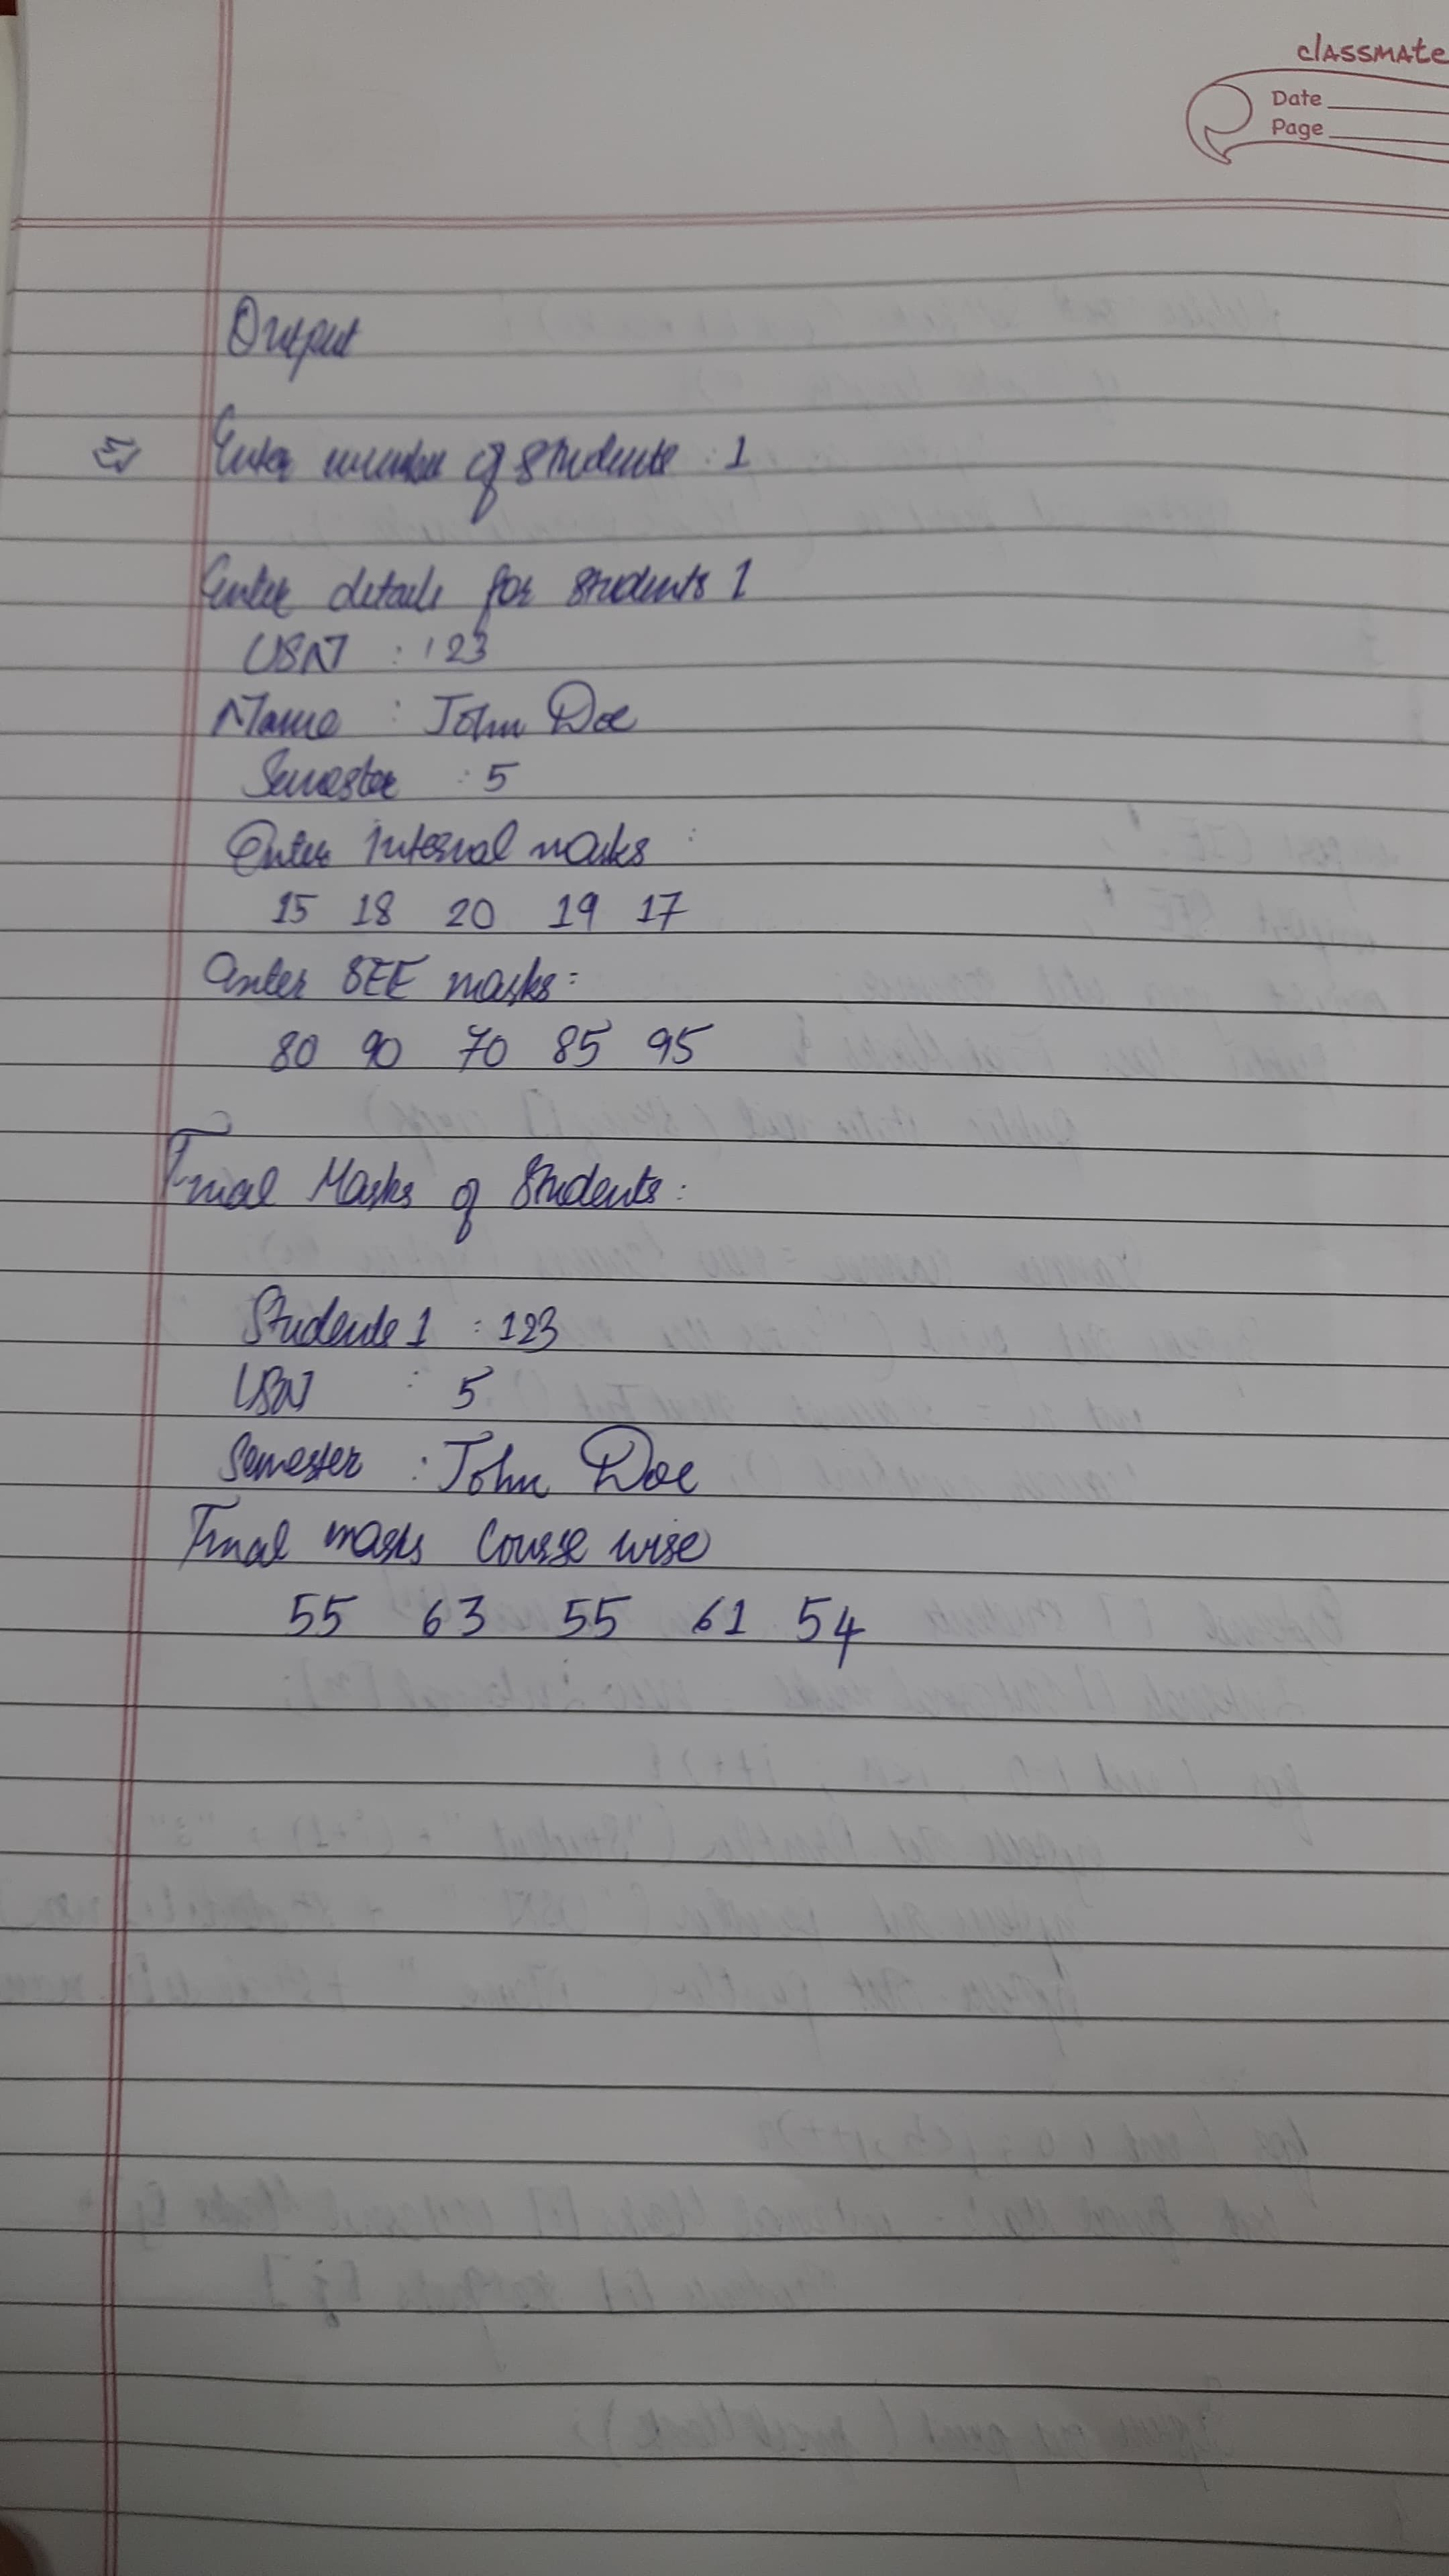 classmate
Date
Page
Output
Enter number of students : 1
Enter details for students 1
USN : 123
Name : John Doe
Semester : 5
Enter internal marks :
15 18 20 19 17
Enter SEE marks :
80 90 70 85 95
Final Marks of Students :
Students 1 : 123
USN : 5
Semester : John Doe
Final marks Course wise
55 63 55 61 54